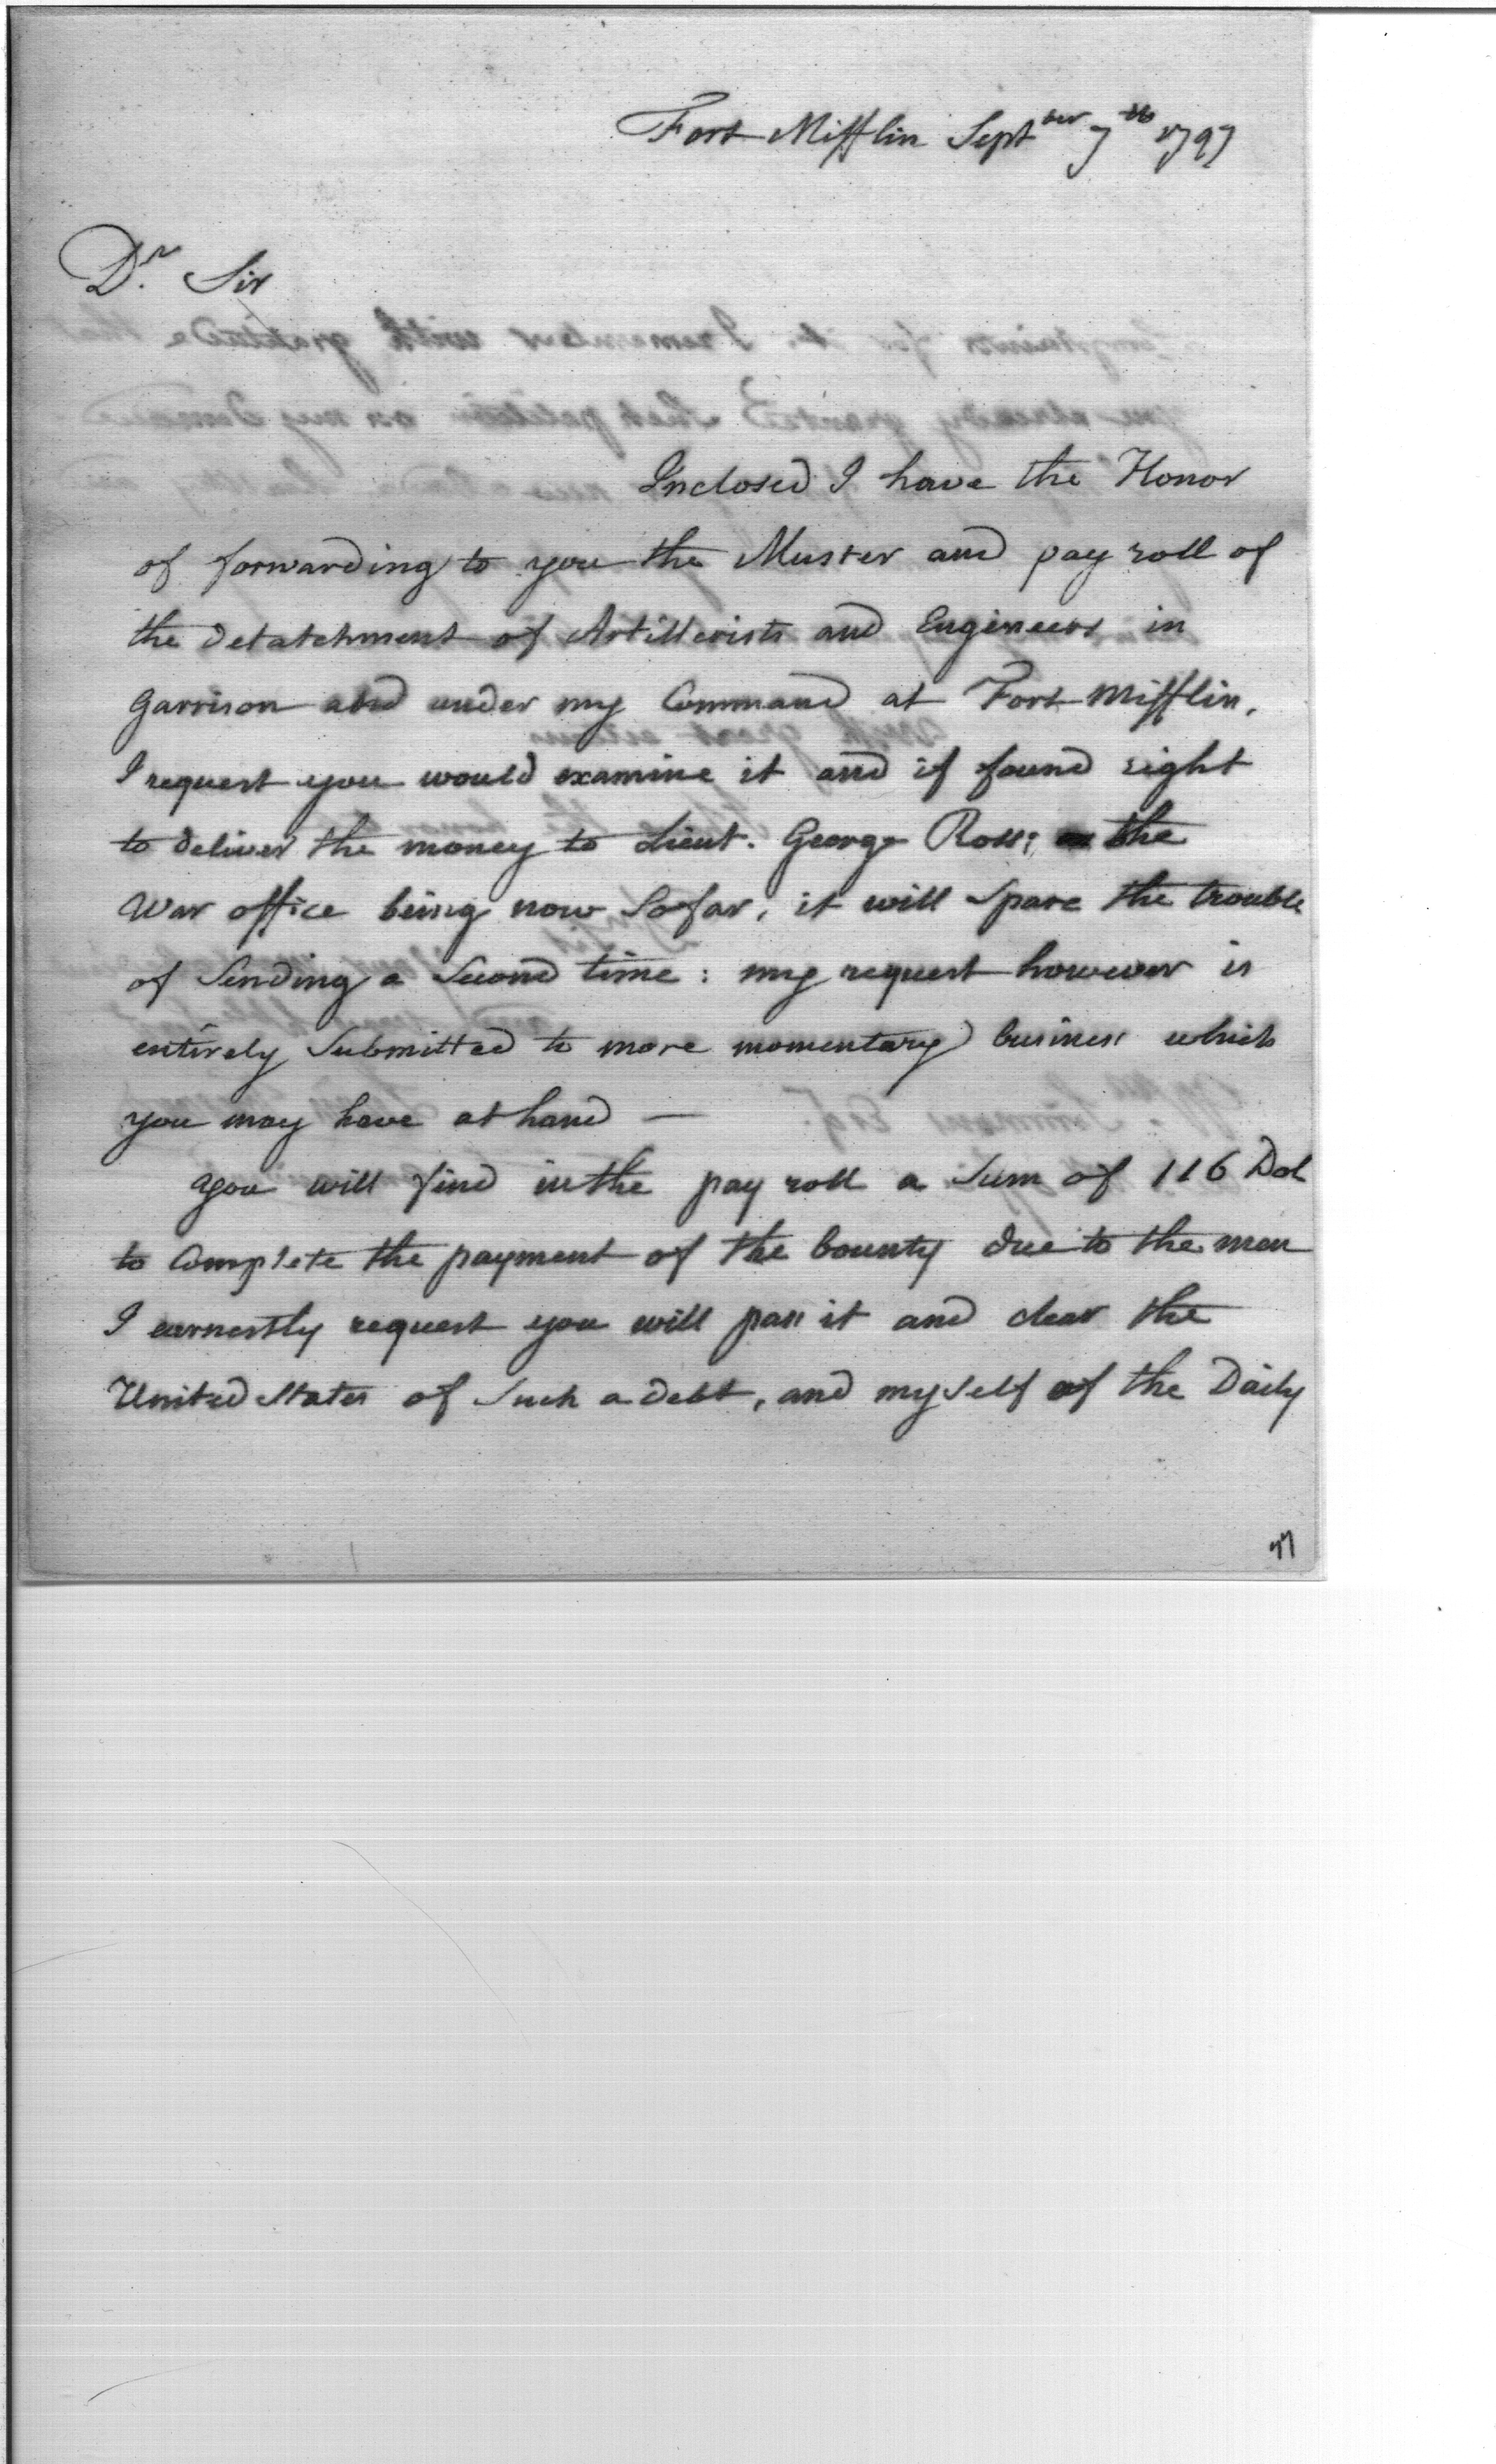 Fort Mifflin Septber 7th 1797
Dr. Sir
Inclosed I have the Honor
of forwarding to you the Muster and pay roll of
the detatchment of Artillerists and Engineers in
Garrison and under my Command at Fort Mifflin.
I request you would examine it and if found right
to deliver the money to Lieut. George Ross; the
War office being now so far, it will spare the trouble
of sending a second time: my request however is
entirely submitted to more momentary business which
you may have at hand —
you will find in the pay roll a sum of 116 Dol
to Complete the payment of the bounty due to the men
I earnestly request you will pass it and clear the
United States of such a debt, and myself of the Daily